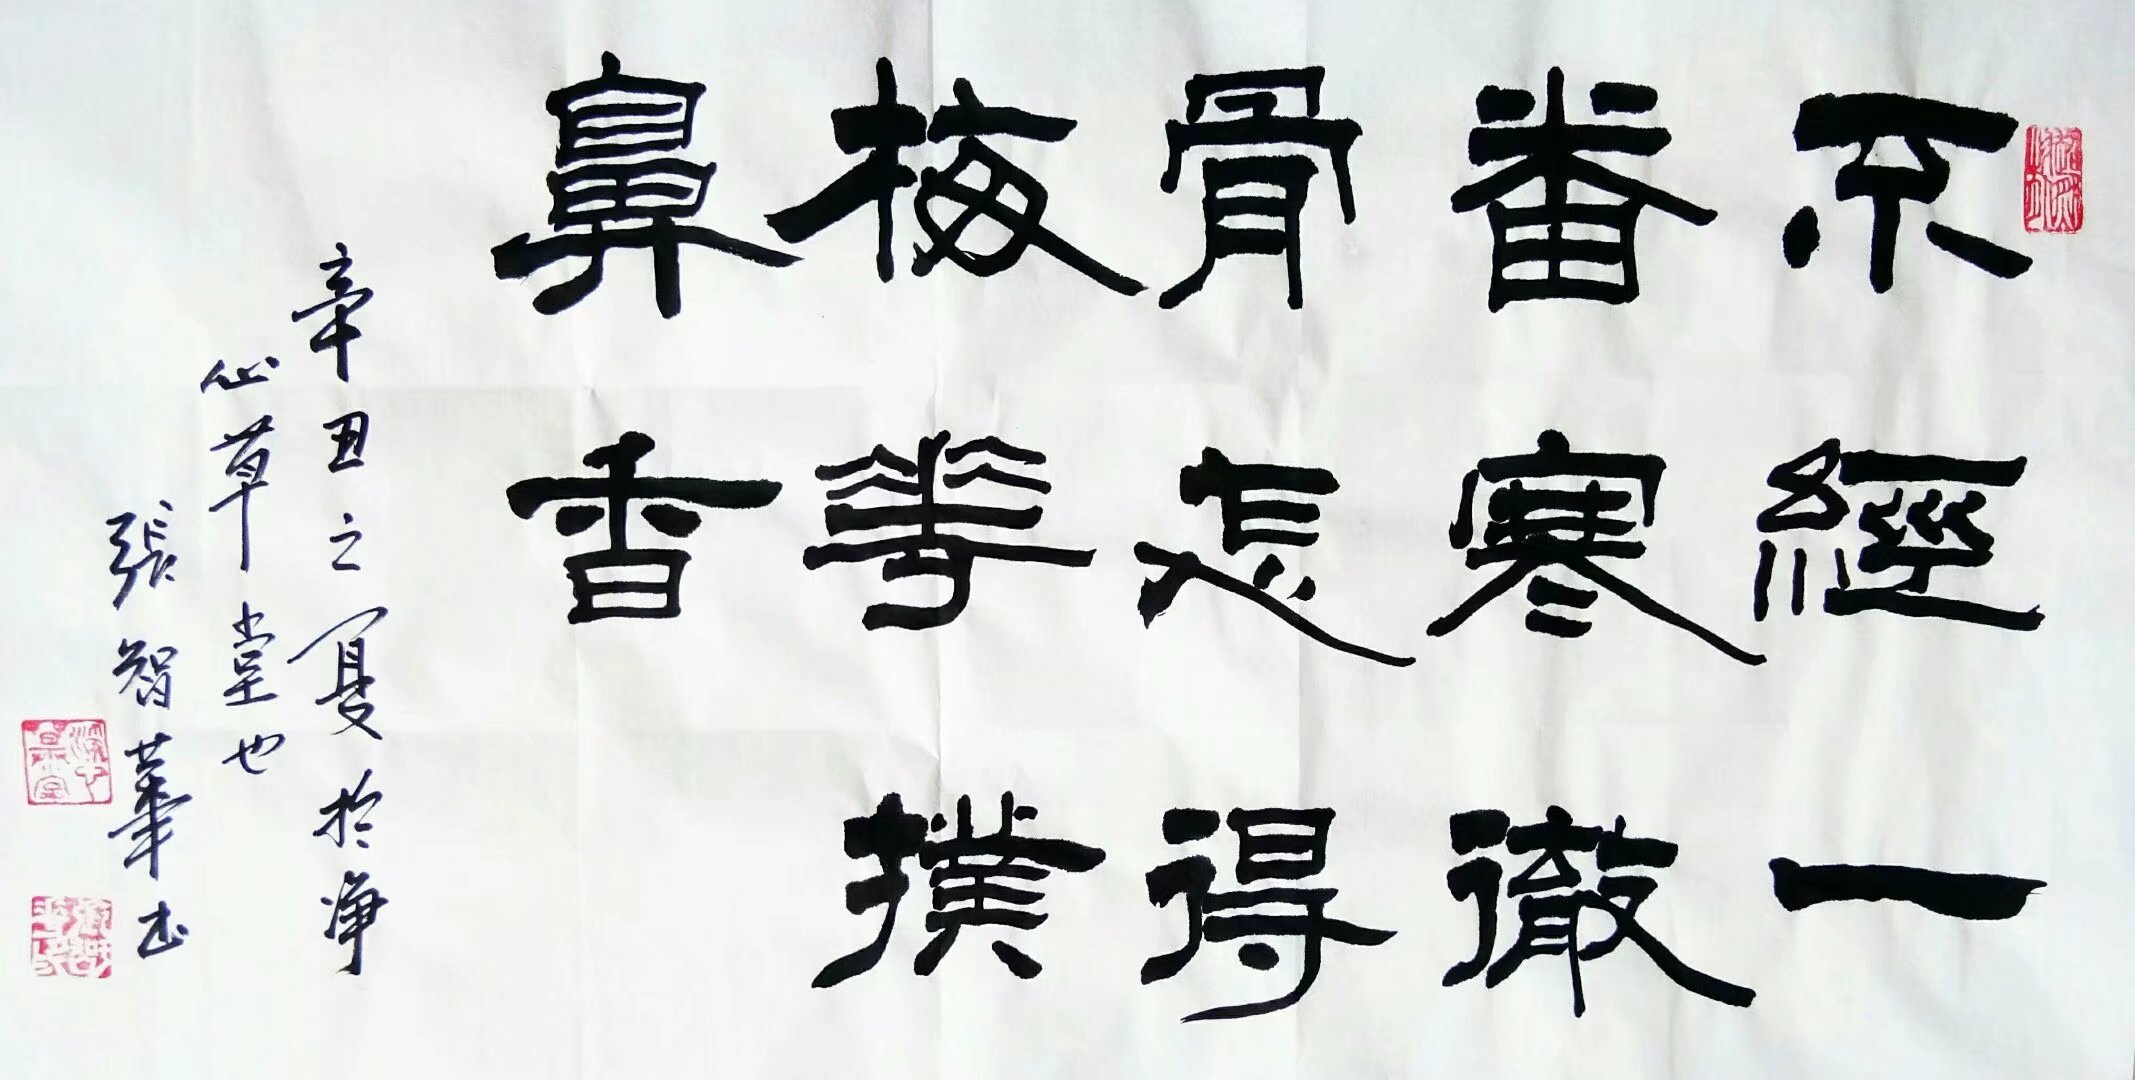 不經一
番寒徹
骨怎得
梅花撲
鼻香
辛丑之夏於净
仙草堂也
張智華書